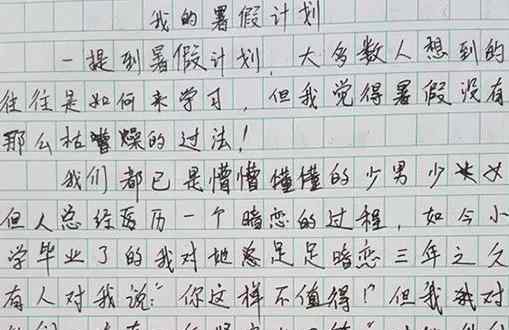 我的暑假计划
一提到暑假计划，大多数人想到的
往往是如何来学习，但我觉得暑假没有
那么枯燥的过法！
我们都已是懵懵懂懂的少男少女
但人总经历一个暗恋的过程，如今小
学毕业了的我对他总足足暗恋三年之久
有人对我说：“你这样不值得！”但我对